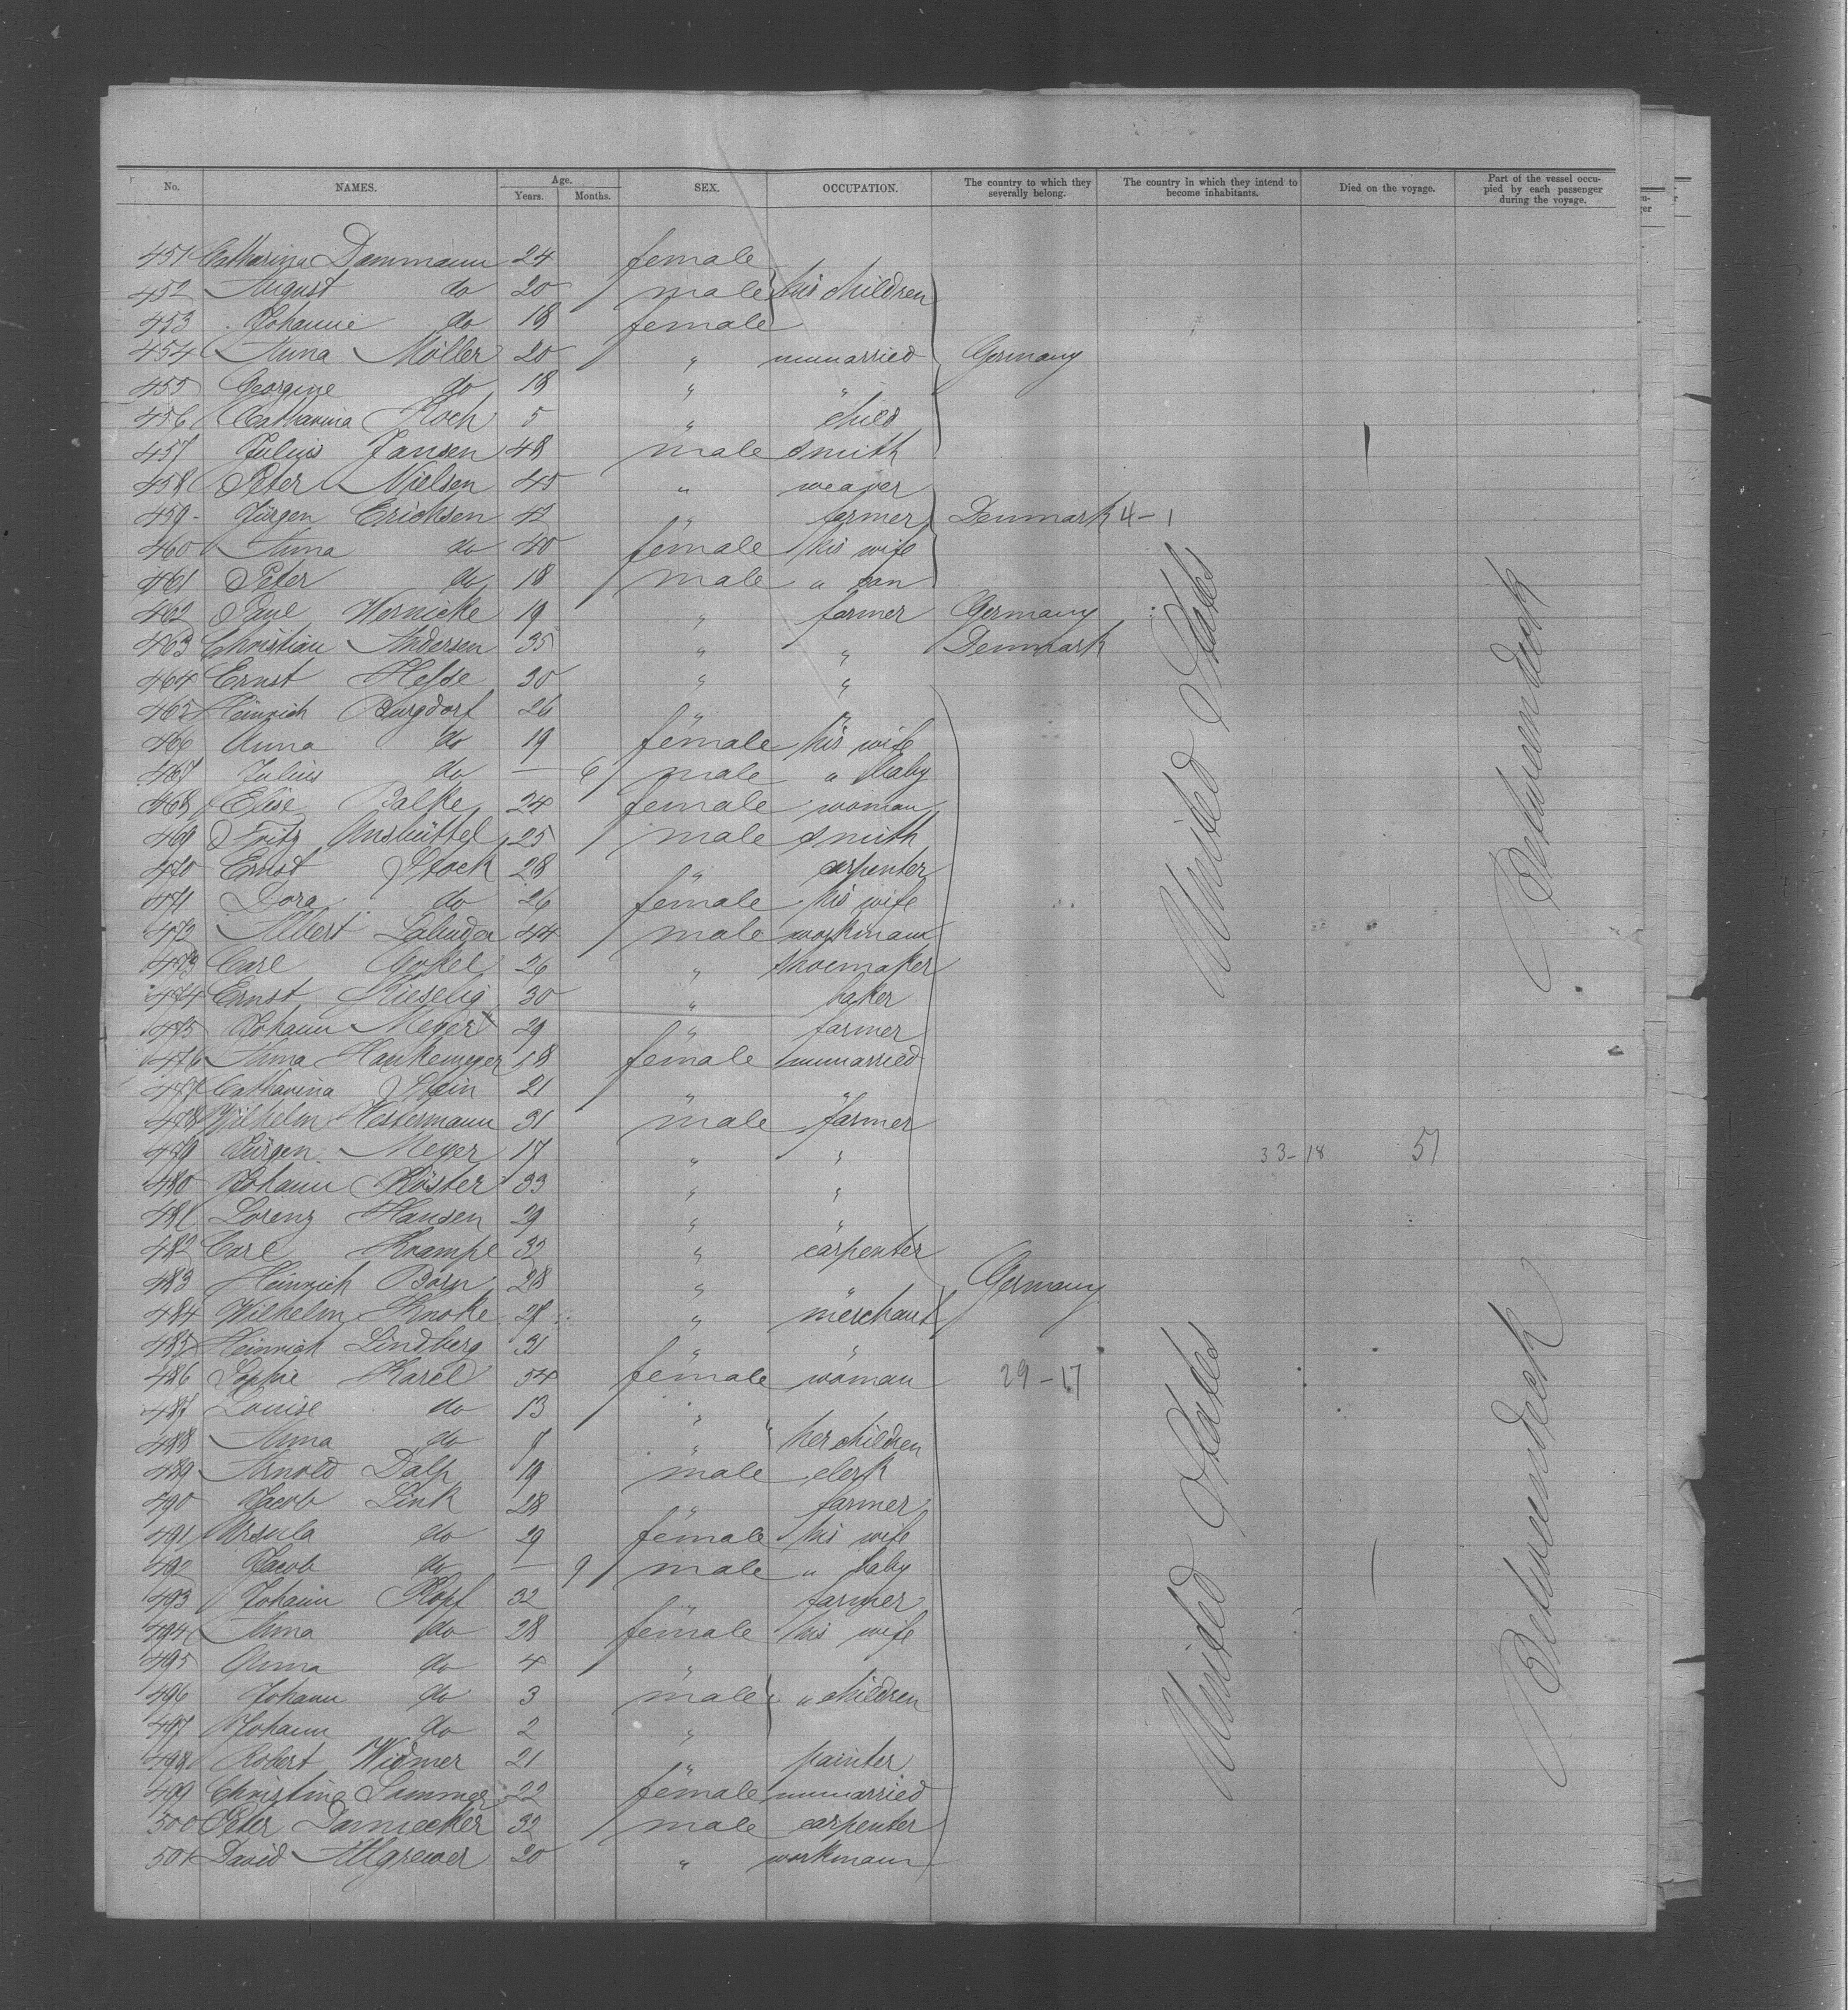 No. NAMES. Age. Years. Months. SEX. OCCUPATION. The country to which they severally belong. The country in which they intend to become inhabitants. Died on the voyage. Part of the vessel occupied by each passenger during the voyage.
451 Catharina Dammann 24 female
452 August do 20 male his children
453 Johanne do 18 female
454 Anna Möller 20 " unmarried Germany
455 Georgine do 18 " "
456 Catharina Koch 5 " child
457 Julius Jansen 48 male smith
458 Peter Nielsen 45 " weaver
459 Jürgen Erichsen 42 " farmer Denmark 4-1
460 Anna do 40 female his wife
461 Peter do 18 male " son
462 Paul Wernicke 19 " farmer Germany
463 Christian Andersen 35 " " Denmark
464 Ernst Hesse 30 " "
465 Heinrich Burgdorf 26 " "
466 Anna do 19 female his wife
467 Julius do — 6 male " baby
468 Elise Balke 24 female woman
469 Fritz 25 male smith
470 Ernst Stock 28 " carpenter
471 Dora do 26 female his wife
472 Albert 44 male workmann
473 Carl 26 " shoemaker
474 Ernst Kieselig 30 " baker
475 Johann Meyer 29 " farmer
476 Anna Hankemeyer 18 female unmarried
477 Catharina Stein 21 " "
478 Wilhelm Westermann 31 male farmer
479 Jürgen Meyer 17 " " 33-18 51
480 Johann Köster 33 " "
481 Lorenz Hansen 29 " "
482 Carl Krampe 32 " carpenter
483 Heinrich Born 28 " " Germany
484 Wilhelm Knoke 28 " merchant
485 Heinrich Lindberg 31 " "
486 Sophie Karel 54 female woman 29-17
487 Louise do 13 "
488 Anna do " her children
489 Arnold Dalp 19 male clerk
490 Jacob Link 28 " farmer
491 Ursula do 29 female his wife
492 Jacob do — 9 male " baby
493 Johann Kopf 32 " farmer
494 Anna do 28 female his wife
495 Anna do 4 "
496 Johann do 3 male " children
497 Johann do 2 "
498 Robert Widmer 21 " painter
499 Christine Sommer 22 female unmarried
500 Peter Dannecker 32 male carpenter
501 David Allgrewer 20 " workmann
United States
Betweendeck
United States
Betweendeck